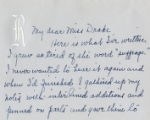 R
My dear Miss Drake
Here is what I've written.
I grew so tired of the word "suffrage"
I never wanted to hear it again and
when I'd finished I gathered up my
notes with interlined additions and
pinned on parts and gave them to